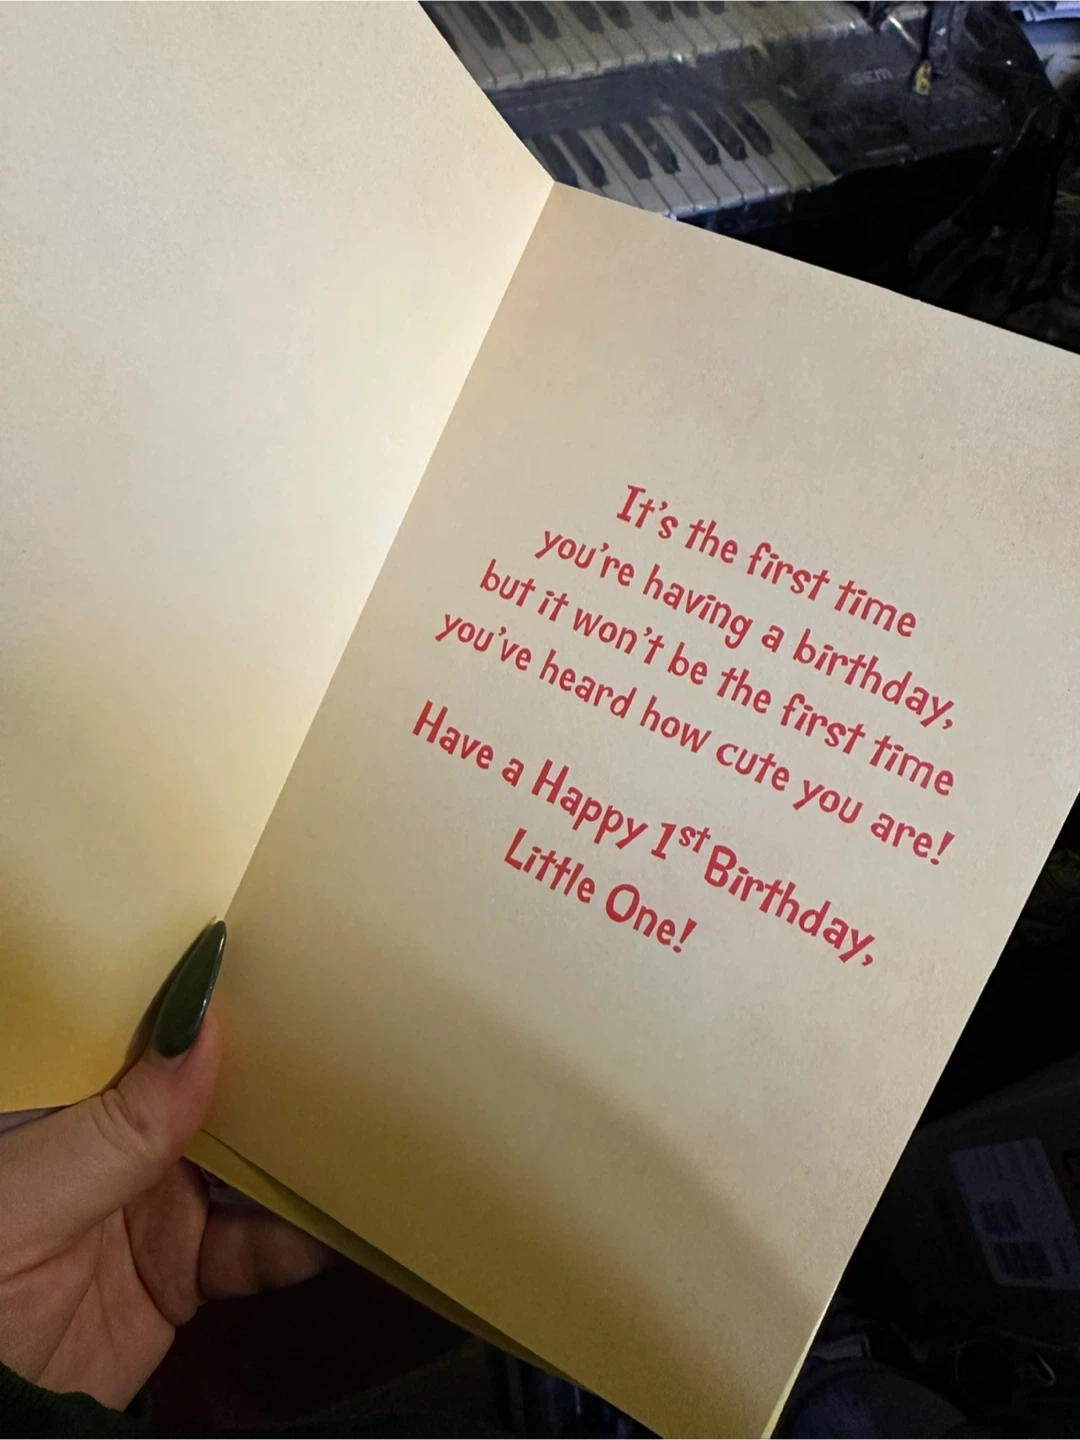 GEM
It's the first time
you're having a birthday,
but it won't be the first time
you've heard how cute you are!
Have a Happy 1st Birthday,
Little One!